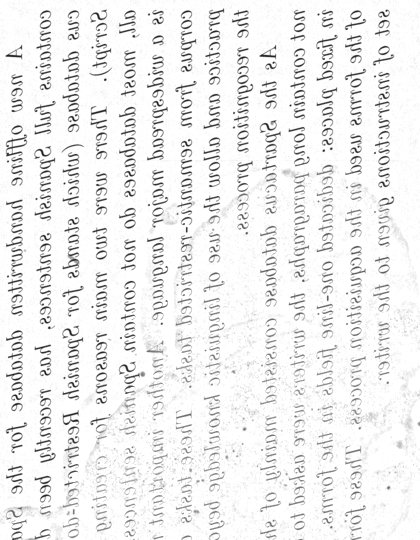 A new offline handwritten database for the Spa
contains full Spanish sentences, has recently been d
cus database (which stands for Spanish Restricted-do
Script). There were two main reasons for creating
all, most databases do not contain Spanish sentences
is a widespread major language. Another important
corpus from semantic-restricted tasks. These tasks a
practice and allow the use of linguistic knowledge beyo
the recognition process.
As the Spartacus database consisted mainly of sh
not contain long paragraphs, the writers were asked to
in fixed places: dedicated one-line fields in the forms.
of the forms used in the acquisition process. These for
set of instructions given to the writer.